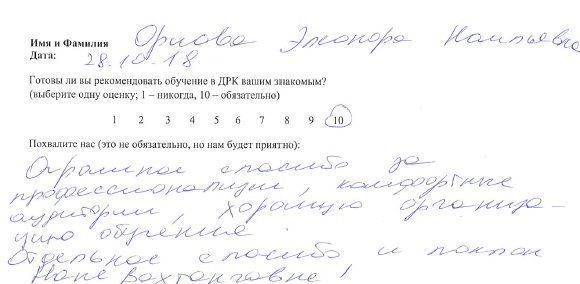 Имя и Фамилия Орлова Элеонора Наильевна
Дата: 28.10.18
Готовы ли вы рекомендовать обучение в ДРК вашим знакомым?
(выберите одну оценку; 1 – никогда, 10 – обязательно)
1 2 3 4 5 6 7 8 9 10
Похвалите нас (это не обязательно, но нам будет приятно):
Огромное спасибо за
профессионализм, комфортные
аудитории, хорошую организа-
цию обучения.
Отдельное спасибо и поклон
Нане Вахтанговне!